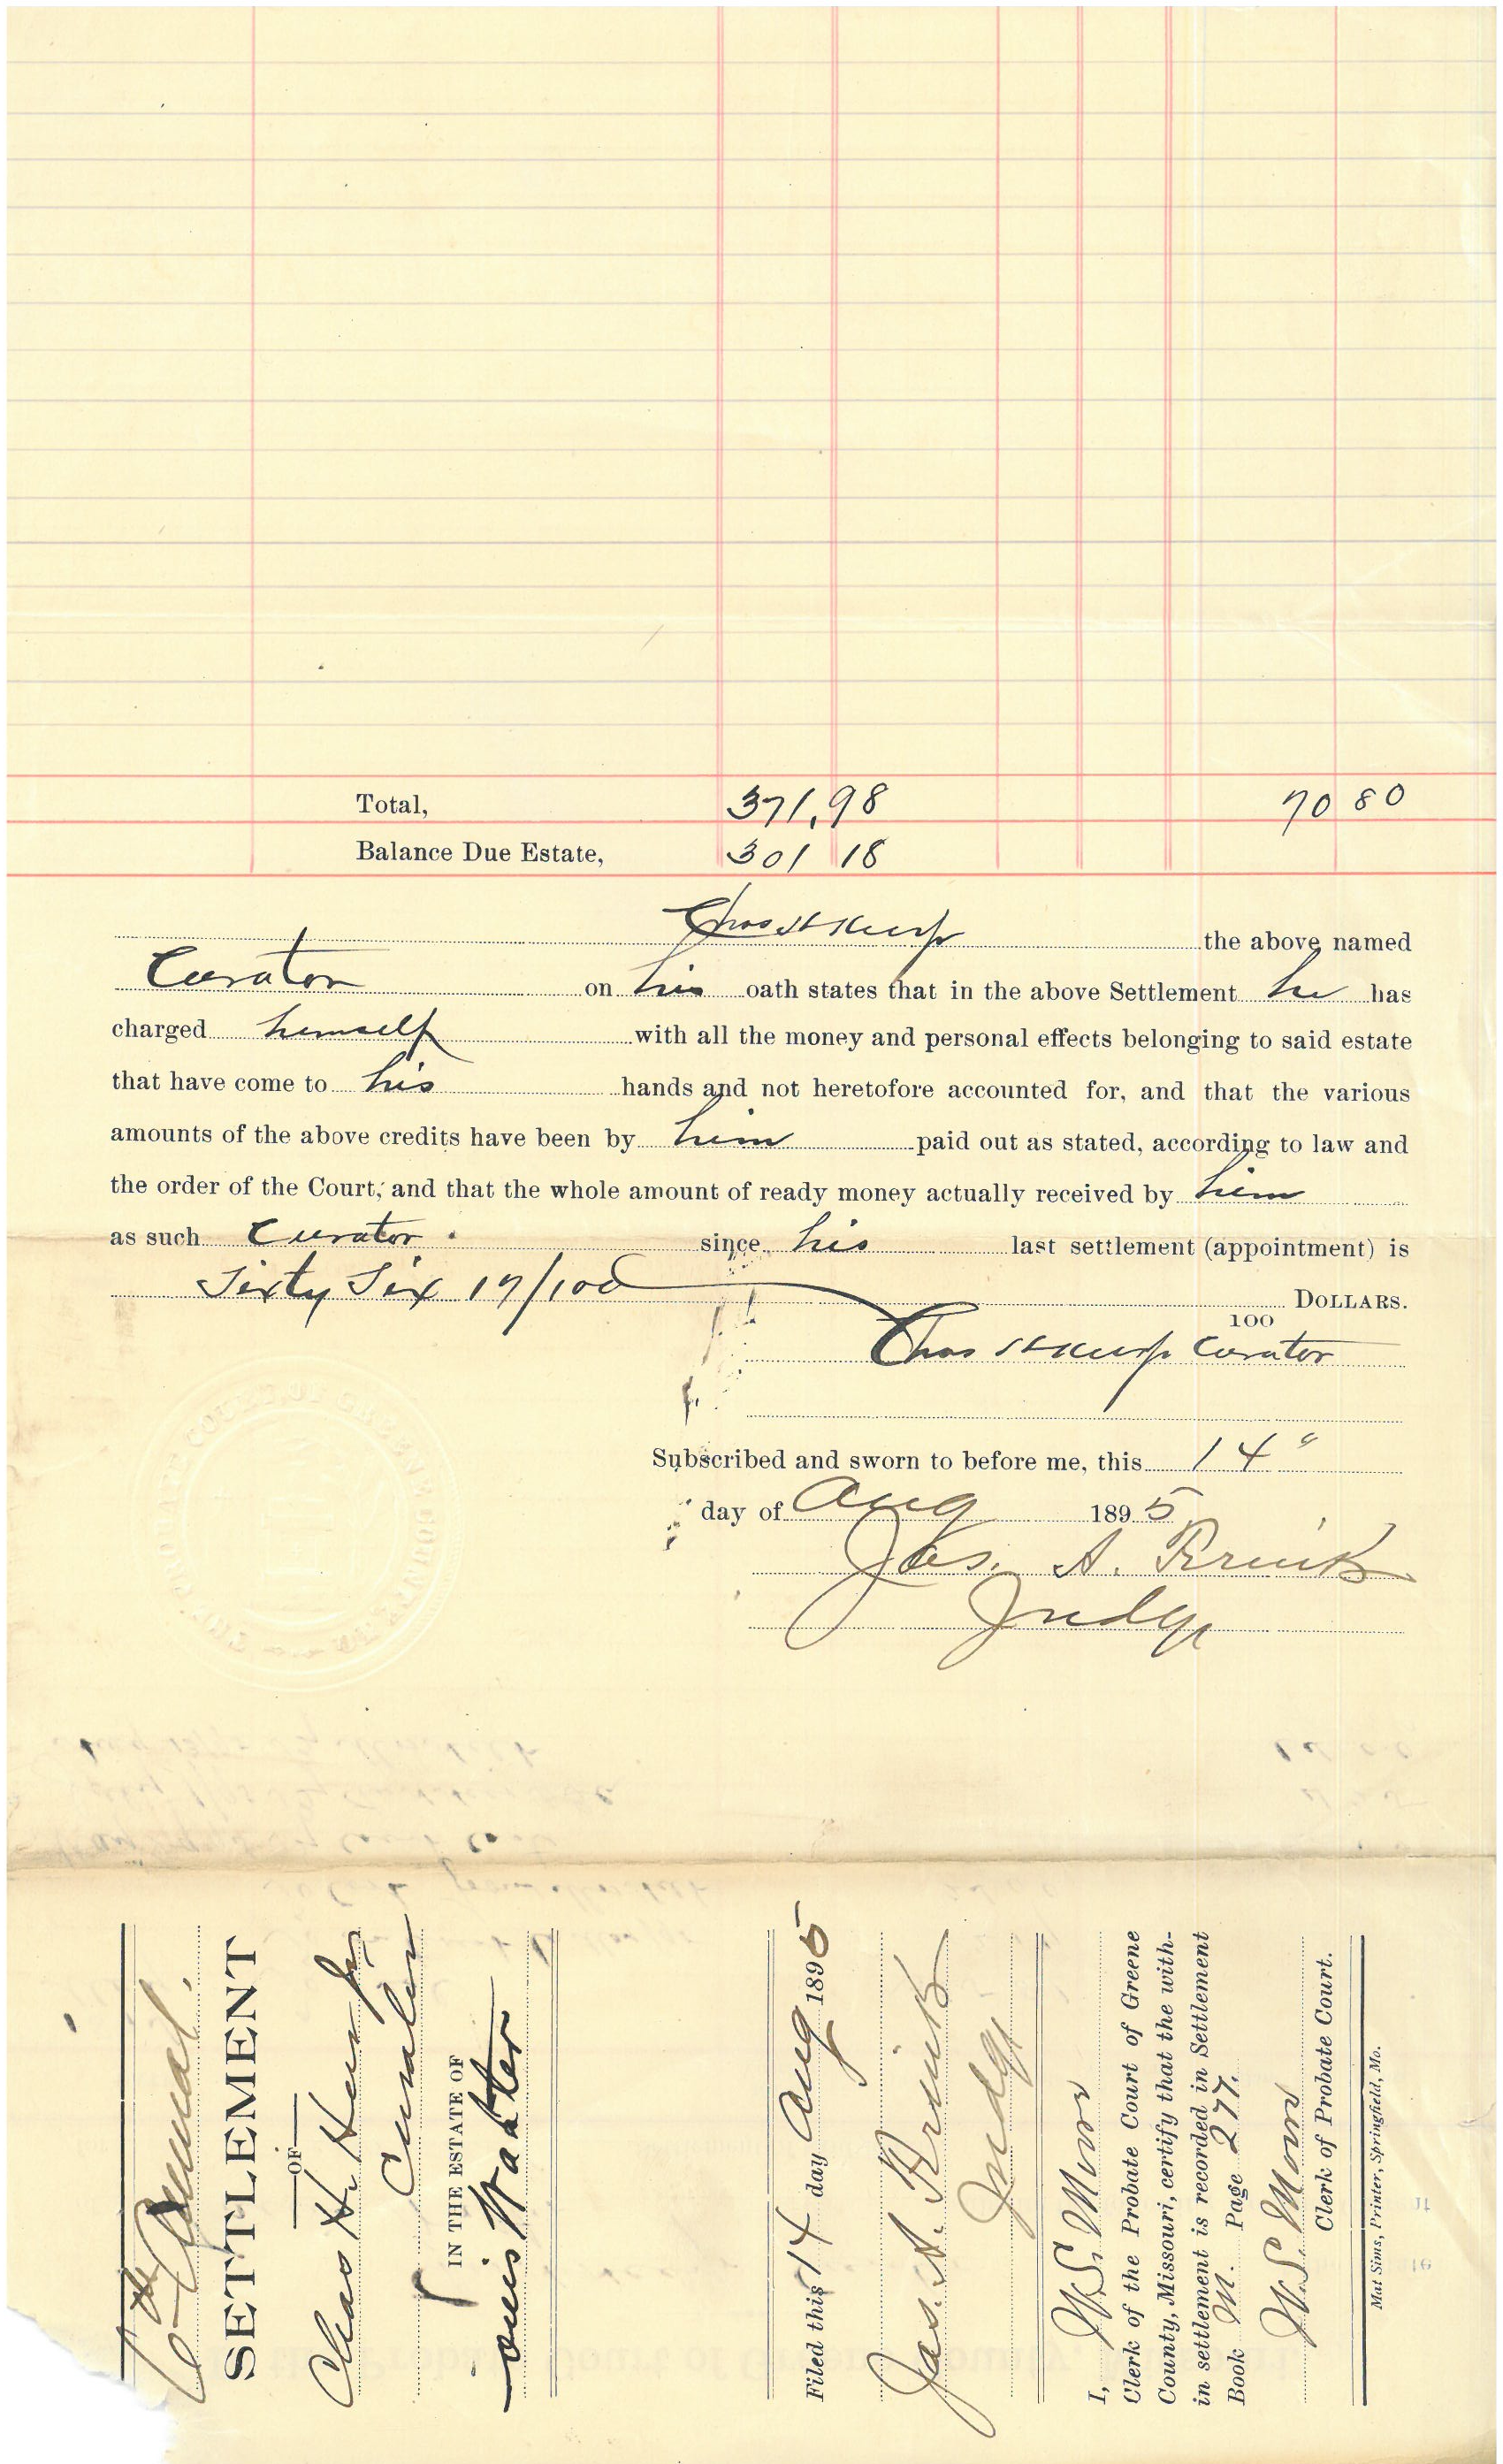 Total, 371.98 70 80
Balance Due Estate, 301 18
Chas H the above named
Curator on his oath states that in the above Settlement he has
charged himself with all the money and personal effects belonging to said estate
that have come to his hands and not heretofore accounted for, and that the various
amounts of the above credits have been by him paid out as stated, according to law and
the order of the Court, and that the whole amount of ready money actually received by him
as such Curator. since his last settlement (appointment) is
Sixty Six 17/100 DOLLARS.
100
Chas H Curator
Subscribed and sworn to before me, this 14"
day of Aug 1895
Jas. A.
Judge
6th Annual.
SETTLEMENT
OF
Chas H.
Curator
IN THE ESTATE OF
Louis Walter
Filed this 14 day Aug 1895
Jas. A.
Judge
I, W.S.
Clerk of the Probate Court of Greene
County, Missouri, certify that the with-
in settlement is recorded in Settlement
Book M. Page 277.
W.S.
Clerk of Probate Court.
Mat Sims, Printer, Springfield, Mo.